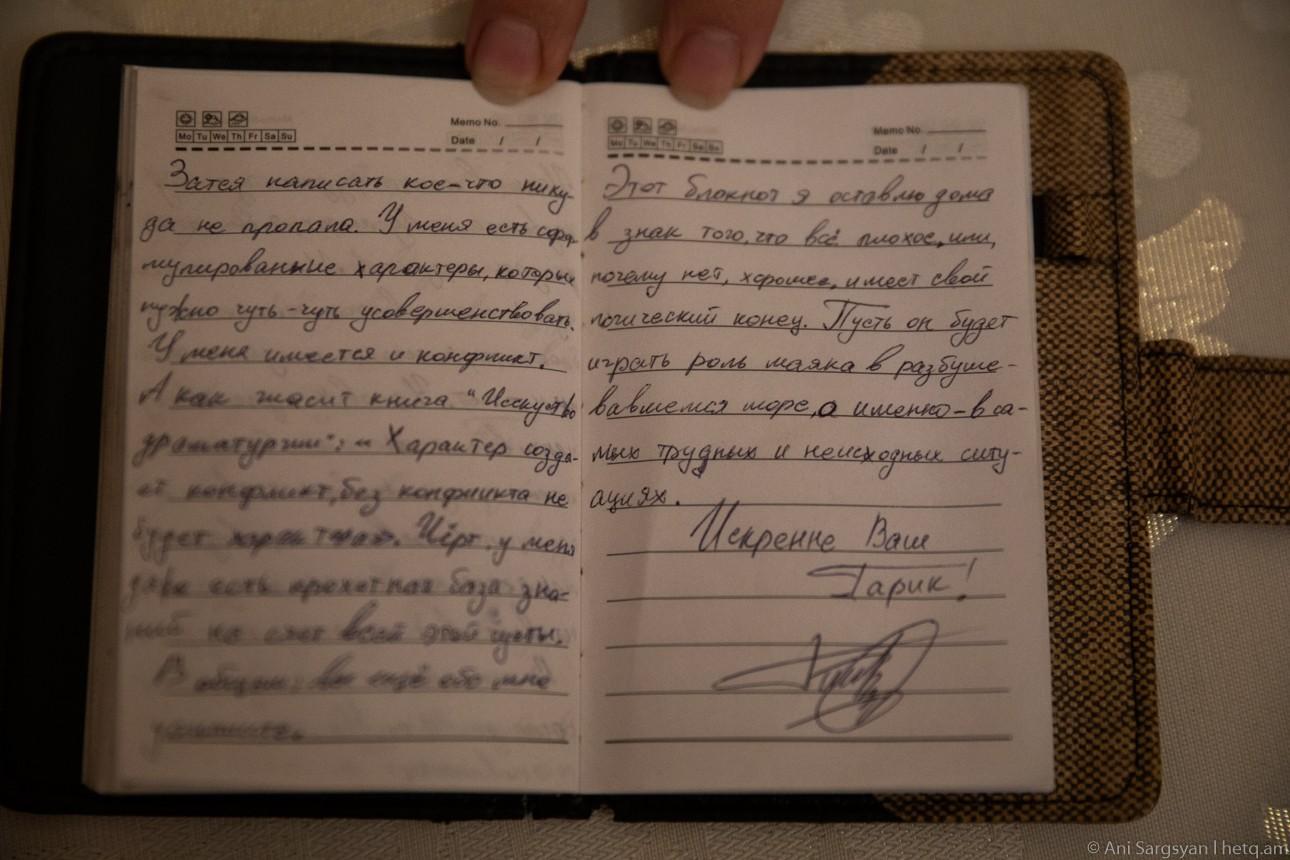 Mo Tu We Th Fr Sa Su
Memo No.
Date / /
Затея написать кое-что нику-
да не пропала. У меня есть сфор-
мулированные характеры, которые
нужно чуть-чуть усовершенствовать.
У меня имеется и конфликт.
А как гласит книга "Исскуство
драматургии": "Характер созда-
ёт конфликт, без конфликта не
будет характера". Чёрт, у меня
даже есть крохотная база зна-
ний на счёт всей этой суеты.
В общем, вы ещё обо мне
услышите.
Mo Tu We Th Fr Sa Su
Memo No.
Date / /
Этот блокнот я оставлю дома
в знак того, что всё плохое, или,
почему нет, хорошее, имеет свой
логический конец. Пусть он будет
играть роль маяка в разбуше-
вавшемся море, а именно - в са-
мых трудных и неисходных ситу-
ациях.
Искренне Ваш
Гарик!
© Ani Sargsyan | hetq.am